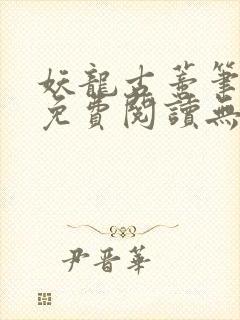 妖龍古蓄筆
免費閱讀無
尹晋華